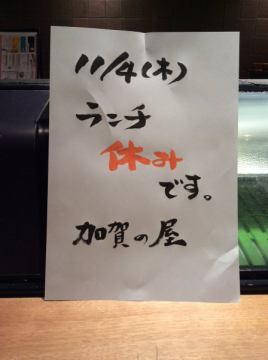 11/4(木)
ランチ
休み
です。
加賀の屋